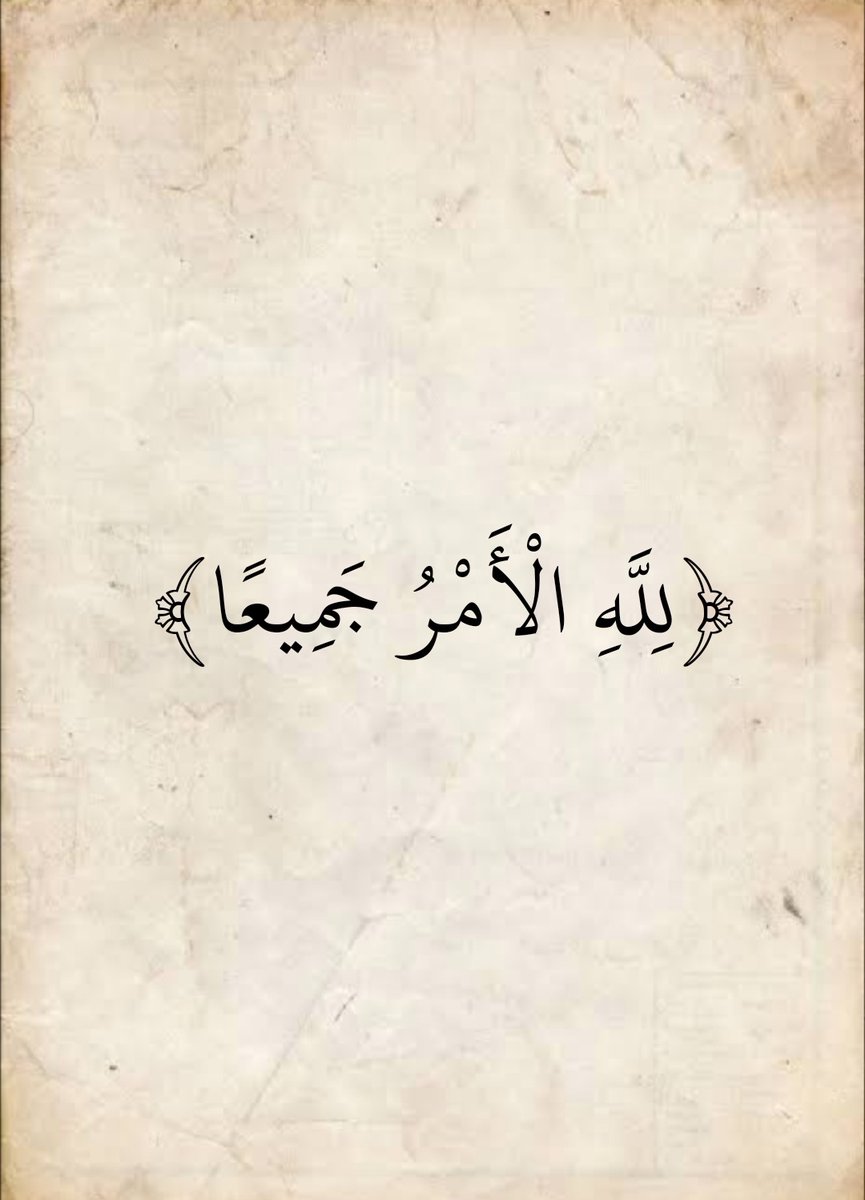 ﴿لِلَّهِ الْأَمْرُ جَمِيعًا﴾